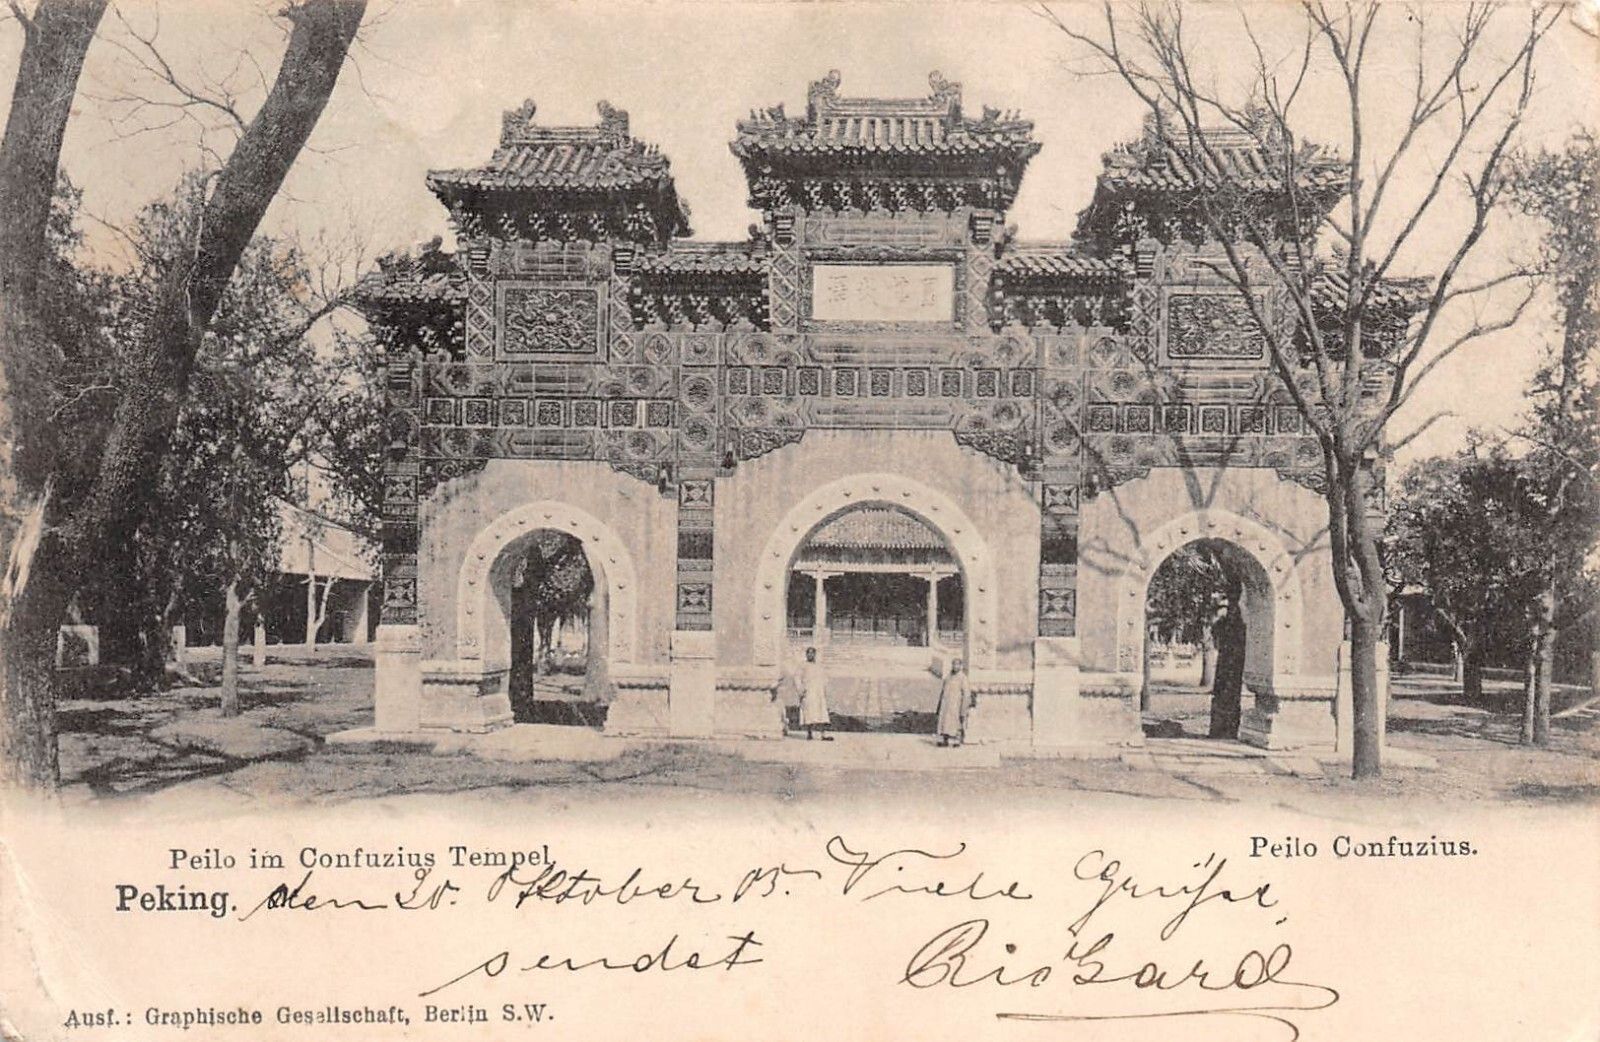 Peilo im Confuzius Tempel.
Peilo Confuzius.
Peking. den 30. Oktober 05. Viele Grüße,
sendet Richard
Ausf.: Graphische Gesellschaft, Berlin S.W.